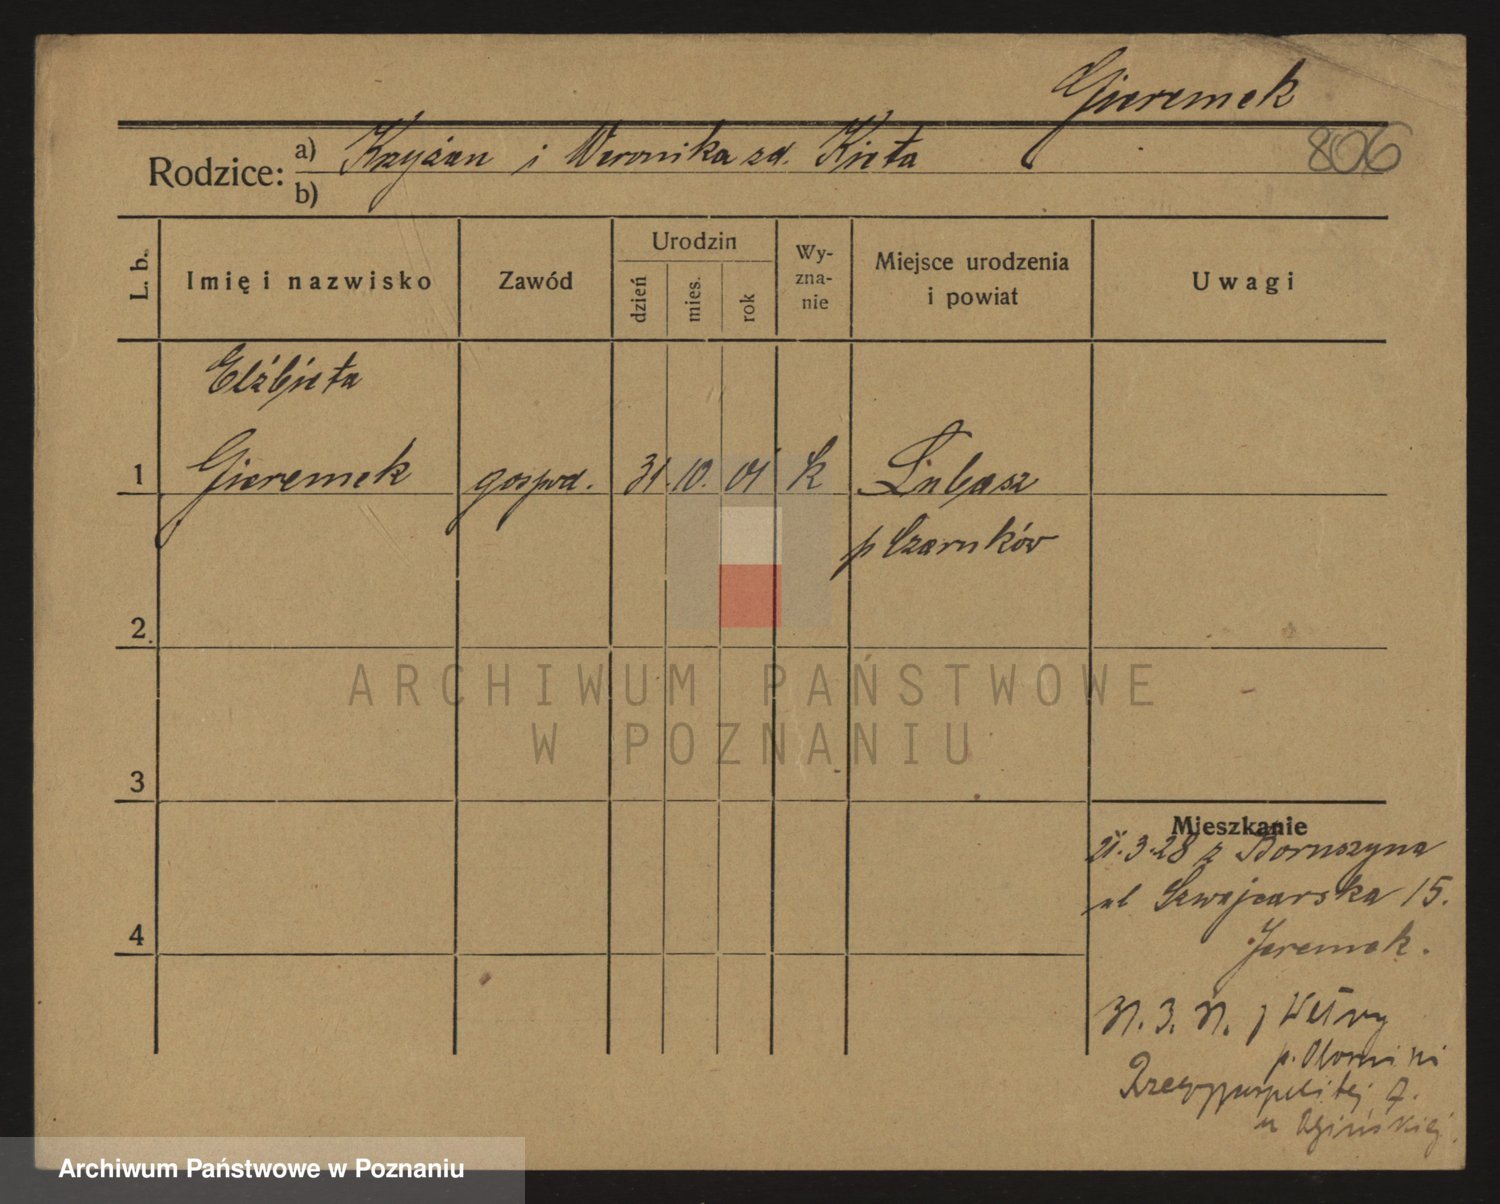 Gieremek
806
Rodzice: a) Krzyżan i Weronika zd. Kieła
b)
L. b. Imię i nazwisko Zawód Urodzin dzień mies. rok Wy-zna-nie Miejsce urodzenia i powiat Uwagi
Elżbieta
1 Gieremek gospod. 31. 10. 01 k Lubasz
p Czarnków
2.
ARCHIWUM PAŃSTWOWE
W POZNANIU
3
Mieszkanie
21.3.28 z Boruszyna
ul Szwajcarska 15.
Jeremek.
4
31. 3. 31. z Wełny
p. Oborniki
Rzeczypospolitej 7.
u
Archiwum Państwowe w Poznaniu